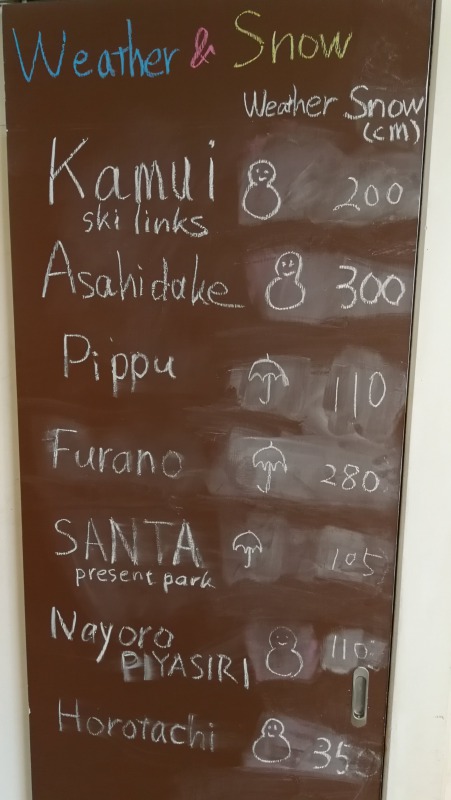 Weather & Snow
Weather Snow
(cm)
Kamui 200
ski links
Asahidake 300
Pippu 110
Furano 280
SANTA 105
present park
Nayoro 110
PIYASIRI
Horotachi 350